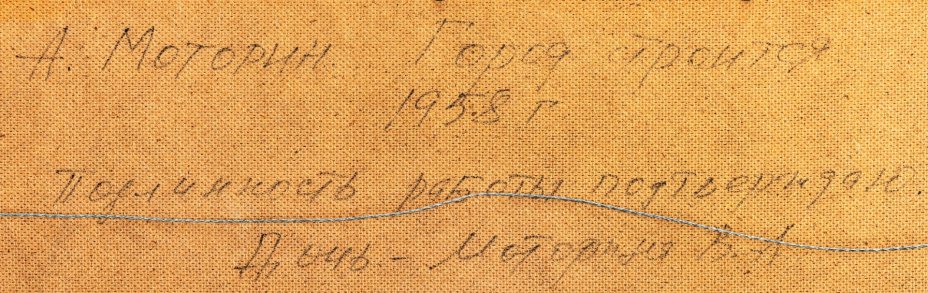 А. Моторин. Город строится.
1958 г
Подлинность работы подтверждаю.
Дочь – Моторина В. А